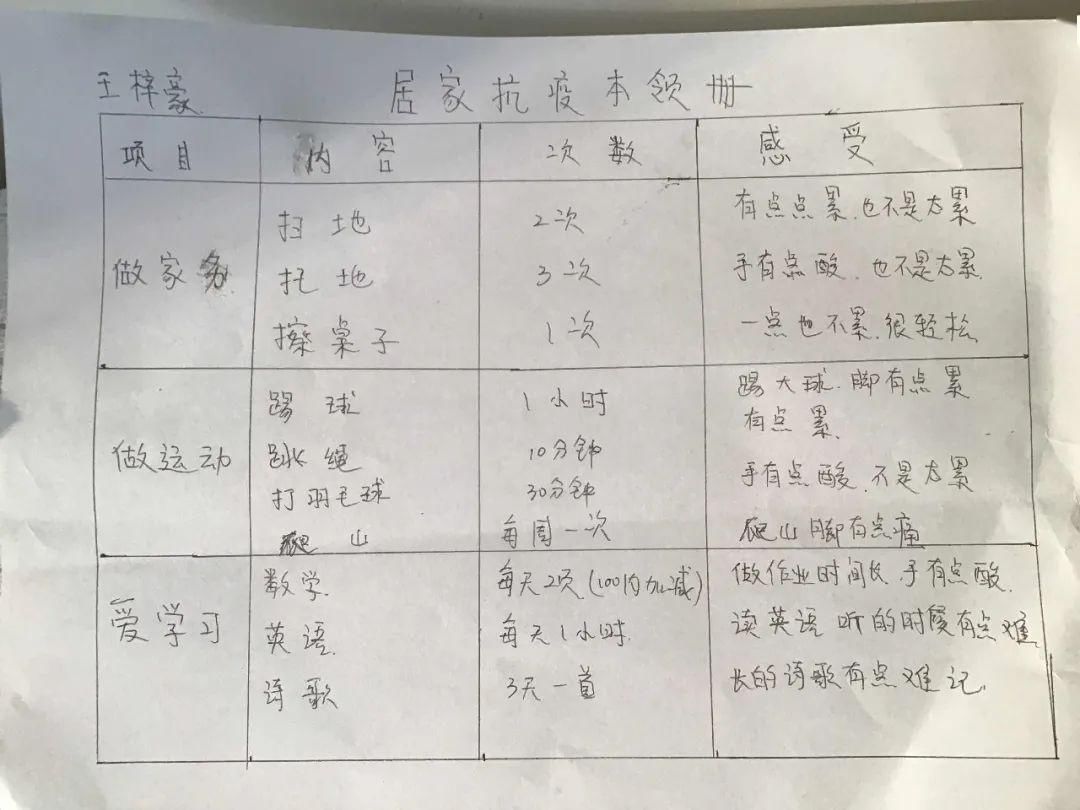 王梓豪 居家抗疫本领册
项目 内容 次数 感受
扫地 2次 有点点累.也不是太累
做家务 托地 3次 手有点酸.也不是太累.
擦桌子 1次 一点也不累.很轻松.
踢球 1小时 踢大球.脚有点累
做运动 跳绳 10分钟 有点累.
打羽毛球 30分钟 手有点酸.不是太累
爬山 每周一次 爬山脚有点痛
数学. 每天2页(100内加减) 做作业时间长.手有点酸.
爱学习 英语. 每天1小时. 读英语听的时候有点难.
诗歌 3天一首 长的诗歌有点难记.